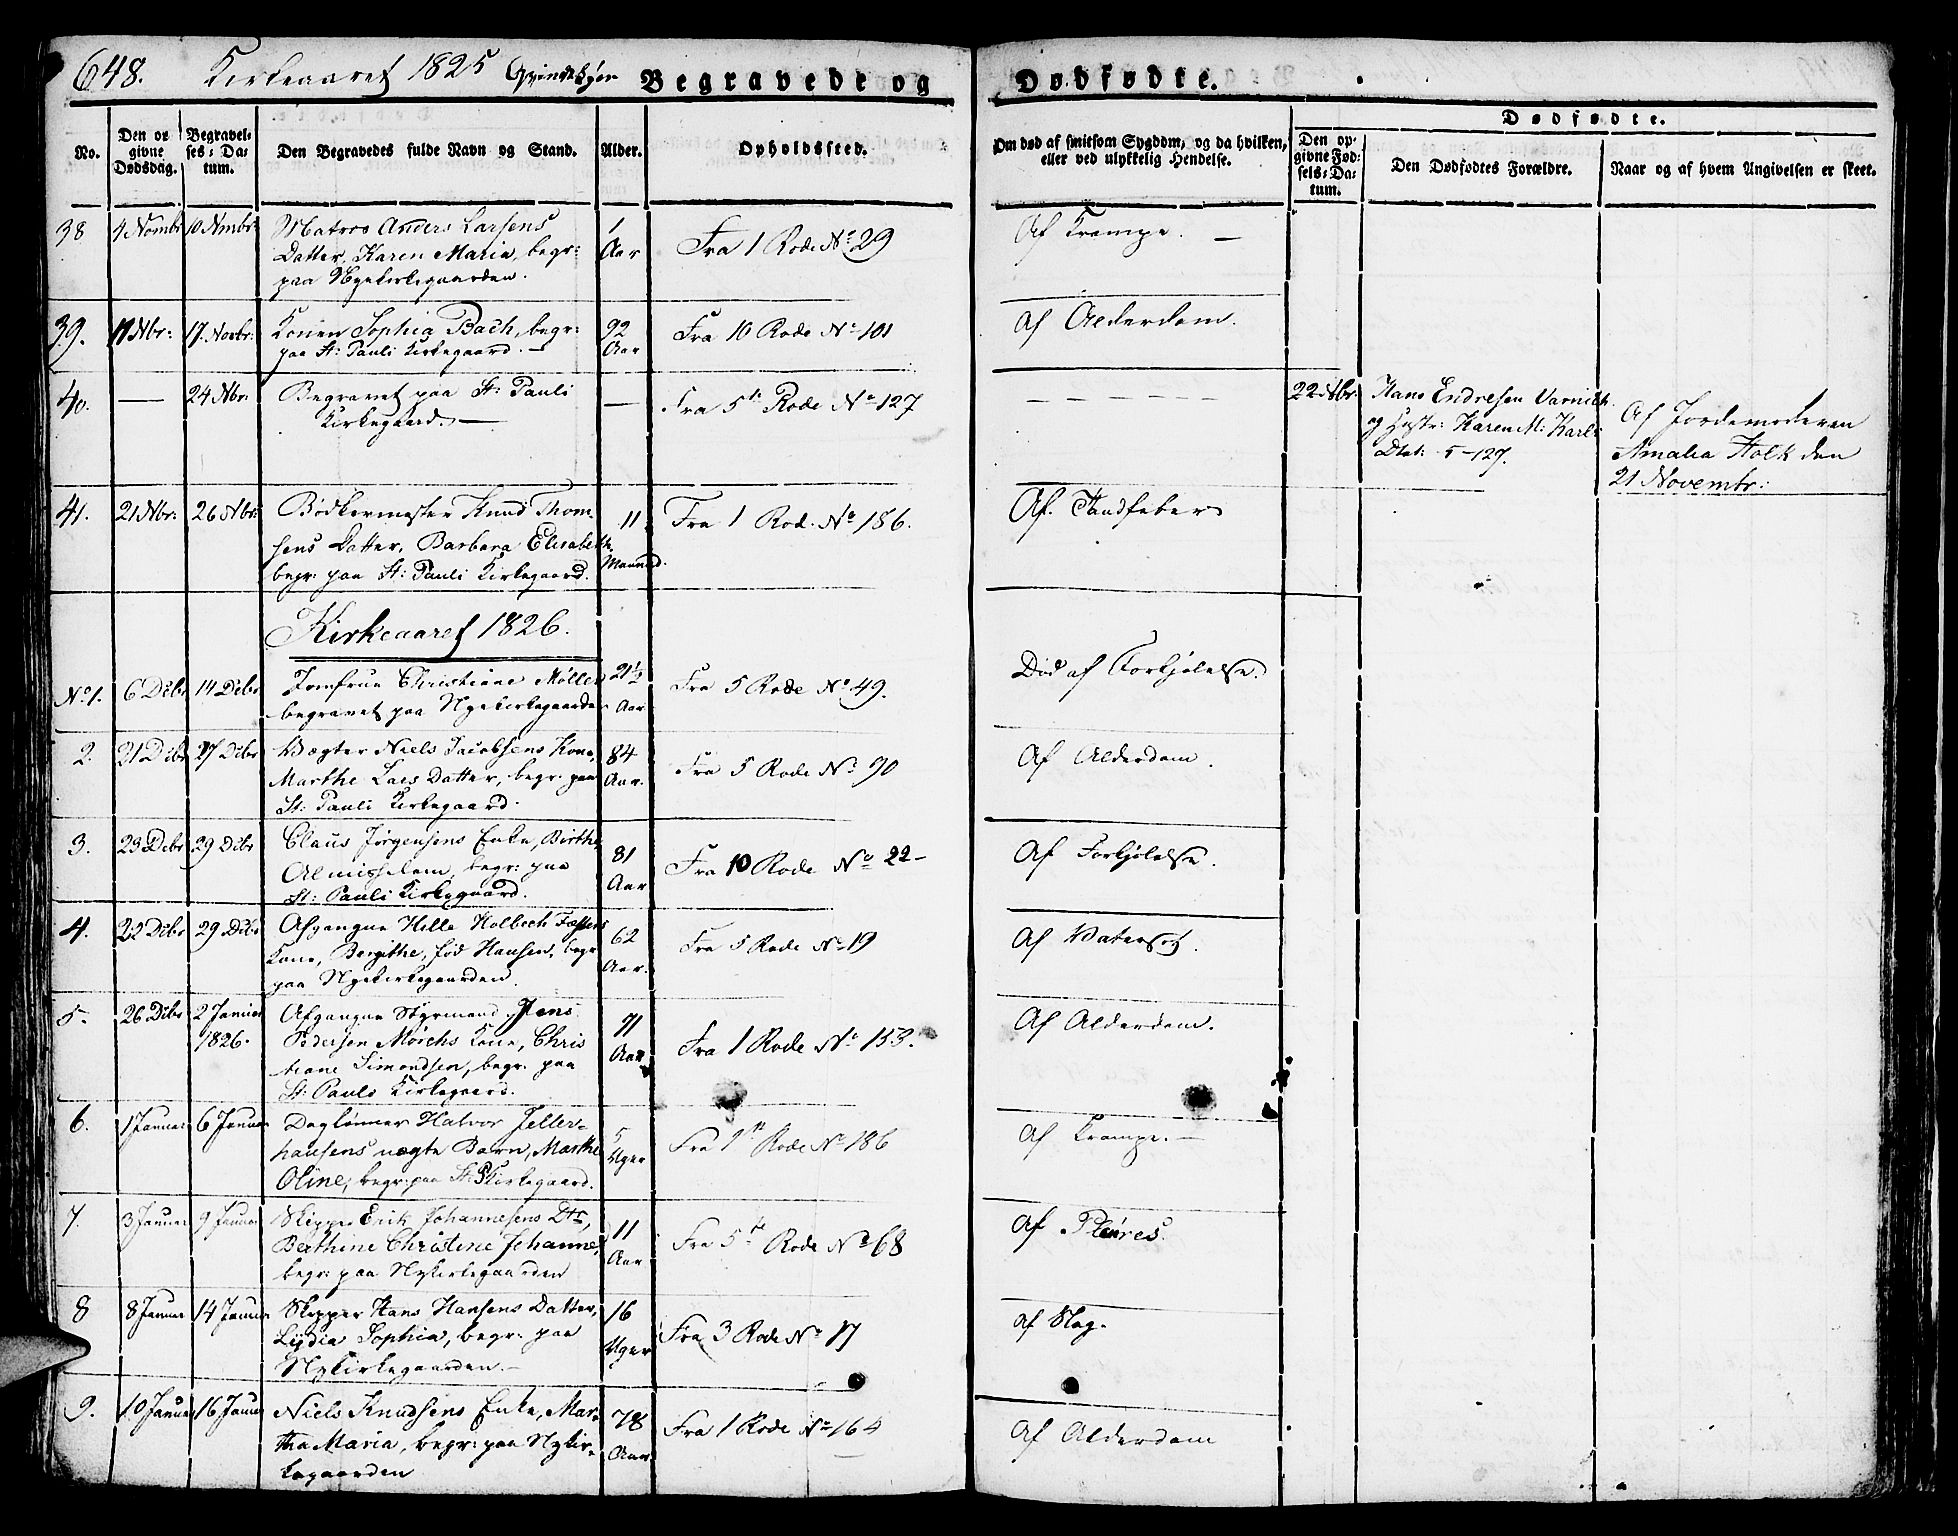 648. Kirkeaaret 1825 Qvindekjøn Begravede og Dødfødte.
No. Den opgivne Dødsdag. Begravelses-Datum. Den Begravedes fulde Navn og Stand. Alder. Opholdssted. Om død af smitsom Sygdom, og da hvilken, eller ved ulykkelig Hendelse. Dødfødte. Den opgivne Fødsels-Datum. Den Dødfødtes Forældre. Naar og af hvem Angivelsen er skeet.
38 4 Nombr 10 Nmbr: Matros Anders Larsens 1 Fra 1 Rode No 29 Af Krampe. —
Datter, Karen Maria, begr: Aar
paa Nyekirkegaarden.
39. 11 Nbr: 17. Novbr: Konen Sophia Bach, begr: 92 Fra 10 Rode No 101 Af Alderdom.
paa St: Pauli Kirkegaard. — Aar
40. — 24 Nbr: Begravet paa St: Pauli — Fra 5te Rode No 127 — — — — — 22 Nbr. Hans Endresen Varnich
Kirkegaard. — og Hustr: Karen M: Karls Af Jordemoderen
Dtet: 5–127. Amalia Holk den
21 Novembr:
41. 21 Nbr: 26 Nbr: Bødkermester Knud Thom- 11 Fra 1 Rod. No 186. Af Tandfeber
sens Datter, Barbara Elisabeth Maaned.
begr: paa St: Pauli Kirkegaard.
Kirkeaaret 1826.
No 1. 6 Debr 14 Debr Jomfrue Christiane Møller 21½ Fra 5 Rode No 49. Død af Forkjølelse.
begravet paa Nyekirkegaarden Aar
2. 21 Debr 27 Debr Vægter Niels Jacobsens Kone, 84 Fra 5 Rode No 90 Af Alderdom.
Marthe Lars Datter, begr: paa Aar.
St: Pauli Kirkegaard.
3. 23 Debr 29 Debr Claus Jørgensens Enke, Birthe 81 Fra 10 Rode No 22 – Af Forkjølelse.
begr: paa Aar
St: Pauli Kirkegaard.
4. 22 Debr 29 Debr Afgangne Hille Holbech 62 Fra 5 Rode No 19 Af Vatersot.
Kone, Bergithe, fød Hansen, begr Aar.
paa Nyekirkegaarden.
5. 26 Debr 2 Januar Afgangne Styrmand Jens 71 Fra 1 Rode No 153. Af Alderdom.
1826. Pedersen Mørchs Kone, Chris Aar
tiane Simondsen, begr. paa
St: Pauls Kirkegaard.
6. 1 Januar 6 Januar Daglønner Halvor Jeller- 5 Fra 1ste Rode No 186 Af Krampe. —
hausens uægte Barn, Marthe Uger
Oline, begr: paa St: P Kirkegaard.
7. 3 Januar 9 Januar Skipper Erik Johannesens Dtr, 11 Fra 5te Rode No 68 Af Pleures.
Berthine Christine Johanne, Aar
begr: paa Nykirkegaarden
8 8 Januar 14 Januar Skipper Hans Hansens Datter, 16 Fra 3 Rode No 17 af Slag.
Lydia Sophia, begr: paa Uger
Nykirkegaarden. —
9. 10 Januar 16 Januar Niels Knudsens Enke, Mar- 78 Fra 1 Rode No 164 Af Alderdom
tha Maria, begr: paa Nykir- Aar
kegaarden